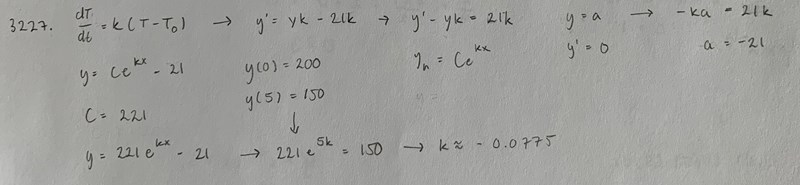 3227. dT/dt = k(T-T₀) → y' = yk - 21k → y' - yk = 21k y = a → -ka = 21k
y = Ce^kx - 21 y(0) = 200 yₕ = Ce^kx y' = 0 a = -21
C = 221 y(5) = 150
↓
y = 221e^kx - 21 → 221e^5k = 150 → k ≈ -0.0775